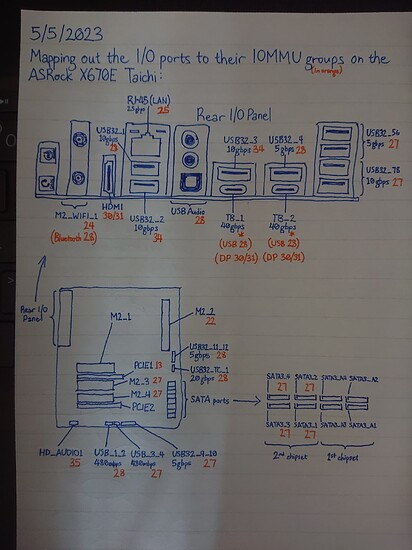 5/5/2023
Mapping out the I/O ports to their IOMMU groups on the
(in orange)
ASRock X670E Taichi:
RJ-45(LAN)
25
Rear I/O Panel
USB32_1
10gbps
28
USB32_3
10gbps 34
USB32_4
5gbps 28
USB32_56
5gbps 27
USB32_78
10gbps 27
M2_WIFI_1
24
(Bluetooth 28)
HDMI
30/31
USB32_2
10gbps
34
USB Audio
28
TB_1
40gbps
(USB 28)
(DP 30/31)
TB_2
40gbps
(USB 28)
(DP 30/31)
Rear I/O
Panel
M2_1
M2_2
22
PCIE1 13
M2_3 27
M2_4 27
PCIE2
USB32_11_12
5gbps 28
USB32_TC_1
20gbps 28
SATA ports
SATA3_4 SATA3_2 SATA_A4 SATA_A2
27 27
SATA3_3 SATA3_1 SATA_A3 SATA_A1
27 27
2nd chipset 1st chipset
HD_AUDIO1
35
USB_1_2
480mbps
28
USB_3_4
480mbps
27
USB32_9_10
5gbps 27